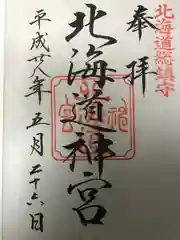 北海道総鎮守
奉拝
北海道神宮
平成廿八年五月二十六日